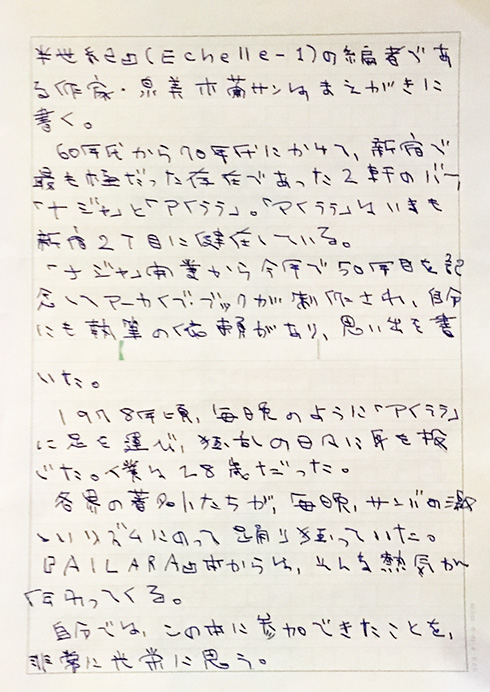 半世紀凸(Echelle-1)の編者であ
る作家・泉美木蘭サンはまえがきに
書く。
60年代から70年代にかけて、新宿で
最も極だった存在であった2軒のバー、
「ナジャ」と「アイララ」。「アイララ」はいまも
新宿2丁目に健在している。
「ナジャ」開業から今年で50年目を記
念してアーカイブ・ブックが制作され、自分
にも執筆の依頼があり、思い出を書
いた。
1978年頃、毎晩のように「アイララ」
に足を運び、狂乱の日々に身を投
じた。僕は28歳だった。
各界の著名人たちが、毎晩、サンバの激
しいリズムにのって踊り狂っていた。
BAILARA凸本からは、そんな熱気が
伝わってくる。
自分では、この本に参加できたことを、
非常に光栄に思う。